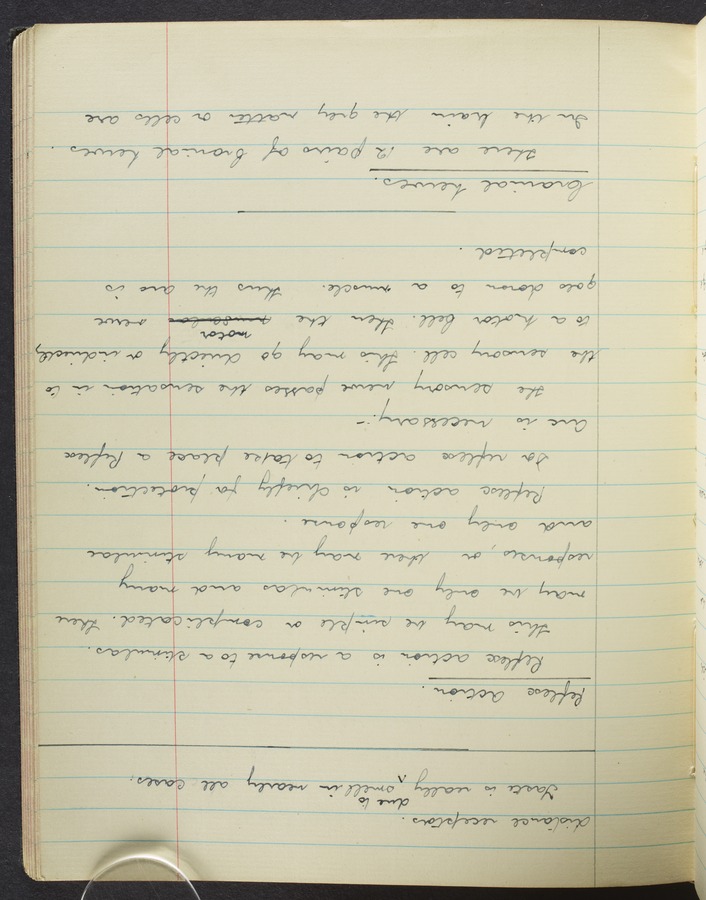 distance receptors.
Taste is really due to smell in nearly all cases.
Reflex Action.
Reflex action is a response to a stimulas.
this may be simple or complicated. there
may be only one stimulas and many
responses, or there may be many stimulae
and only one response.
Reflex action is chiefly for protection.
For reflex action to take place a Reflex
arc is necessary:-
the sensory nerve passes the sensation in to
the sensory cell. this may go directly or indirectly
to a motor cell. then the motor nerve
goes down to a muscle. thus the arc is
completed.
Cranial nerves.
there are 12 pairs of Cranial nerves.
In the brain the grey matter or cells are